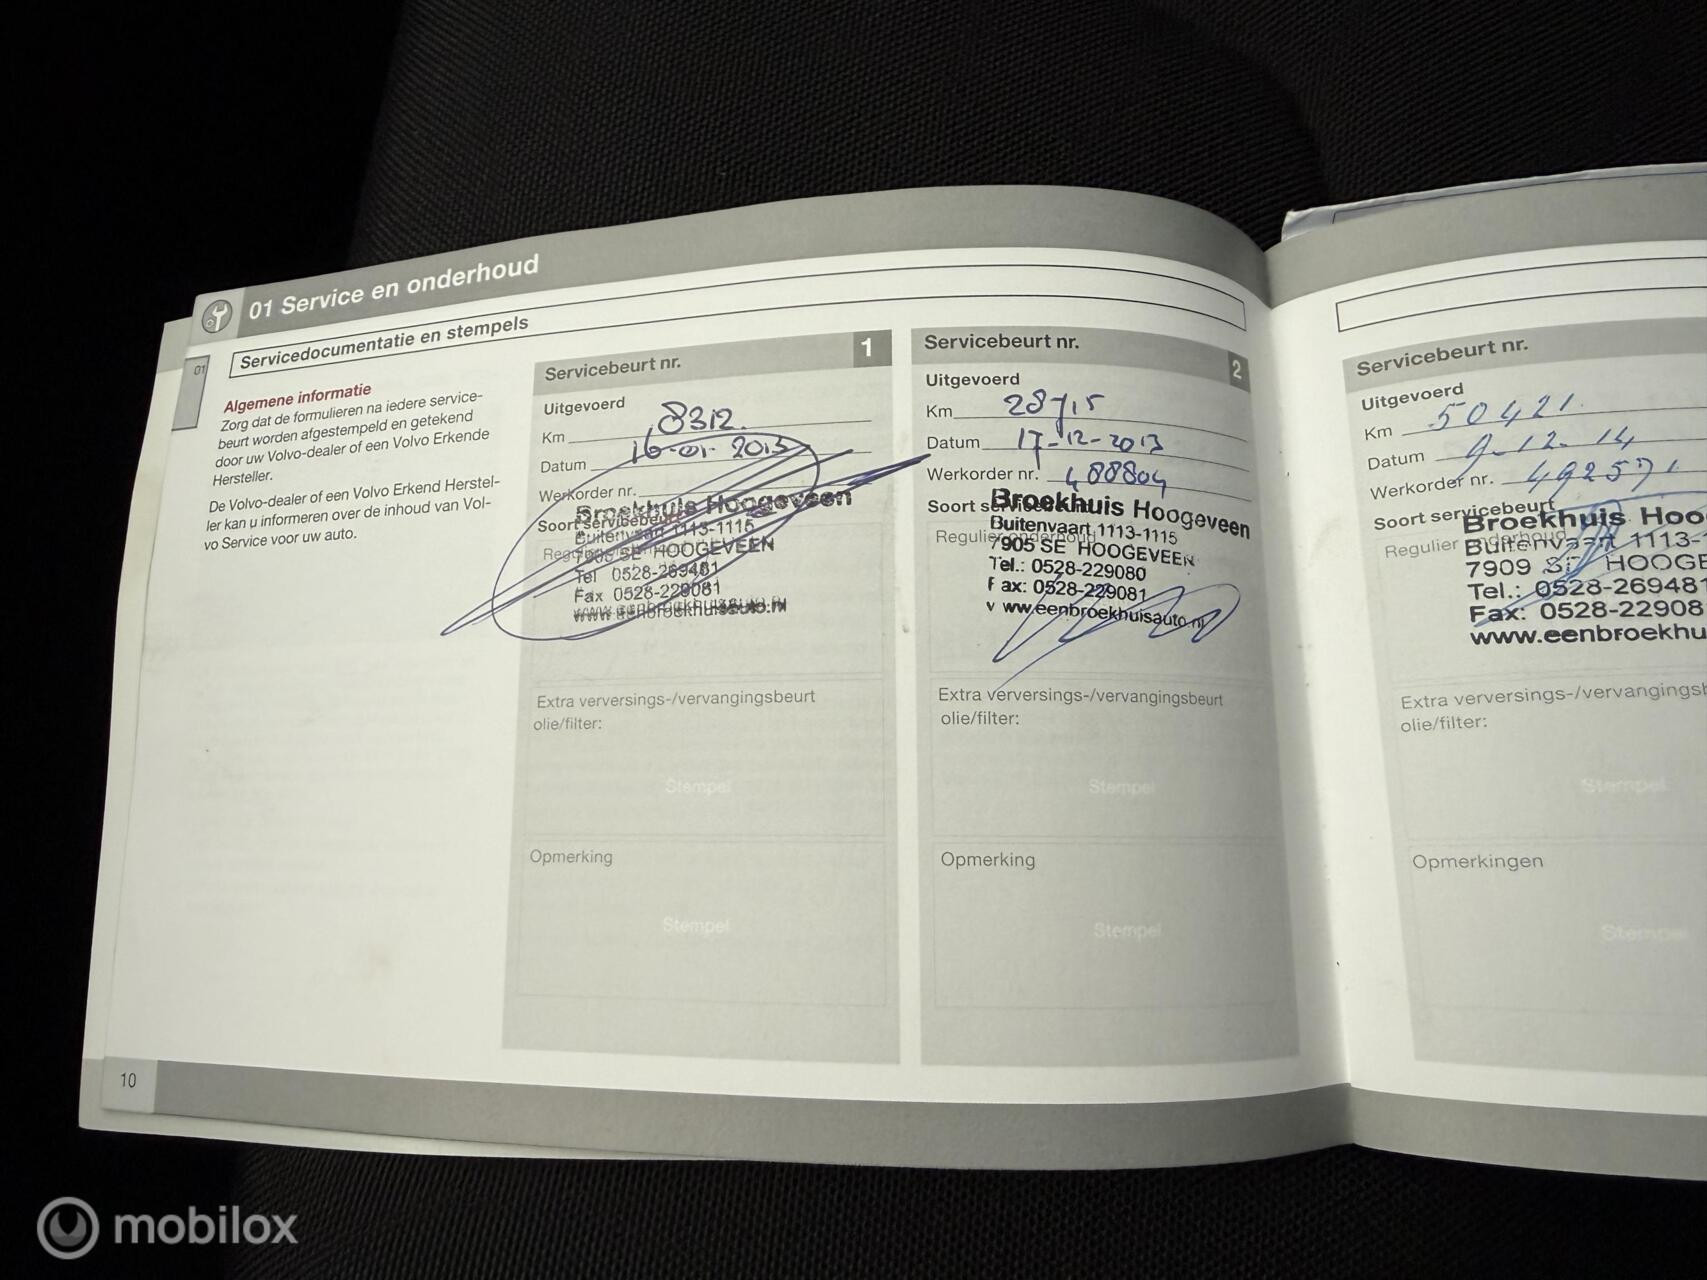 01 Service en onderhoud
01
Servicedocumentatie en stempels
Algemene informatie
Zorg dat de formulieren na iedere service-
beurt worden afgestempeld en getekend
door uw Volvo-dealer of een Volvo Erkende
Hersteller.
De Volvo-dealer of een Volvo Erkend Herstel-
ler kan u informeren over de inhoud van Vol-
vo Service voor uw auto.
Servicebeurt nr. 1
Uitgevoerd
Km 8312.
Datum 16-01-2013
Werkorder nr.
Broekhuis Hoogeveen
Soort servicebeurt
Buitenvaart 1113-1115
Regulier
7905 SE HOOGEVEEN
Tel 0528-269481
Fax 0528-229081
www.eenbroekhuisauto.nl
Extra verversings-/vervangingsbeurt
olie/filter:
Stempel
Opmerking
Stempel
Servicebeurt nr. 2
Uitgevoerd
Km 28715
Datum 17-12-2013
Werkorder nr. 488804
Soort servicebeurt
Broekhuis Hoogeveen
Buitenvaart 1113-1115
Regulier onderhoud
7905 SE HOOGEVEEN
Tel.: 0528-229080
Fax: 0528-229081
www.eenbroekhuisauto.nl
Extra verversings-/vervangingsbeurt
olie/filter:
Stempel
Opmerking
Stempel
Servicebeurt nr.
Uitgevoerd
Km 50421.
Datum 9-12-14
Werkorder nr. 492571
Soort servicebeurt
Broekhuis Hoo
Buitenvaart 1113-1
Regulier onderhoud
7909 SE HOOGE
Tel.: 0528-269481
Fax: 0528-22908
www.eenbroekhu
Extra verversings-/vervangingsb
olie/filter:
Stempel
Opmerkingen
Stempel
10
mobilox